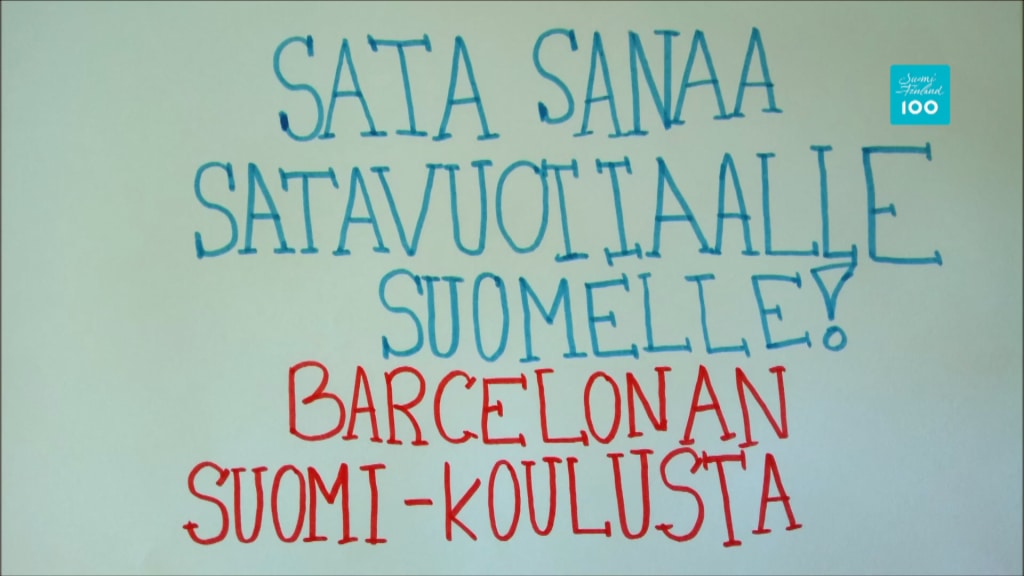 SATA SANAA
SATAVUOTIAALLE
SUOMELLE!
BARCELONAN
SUOMI-KOULUSTA
Suomi
Finland
100